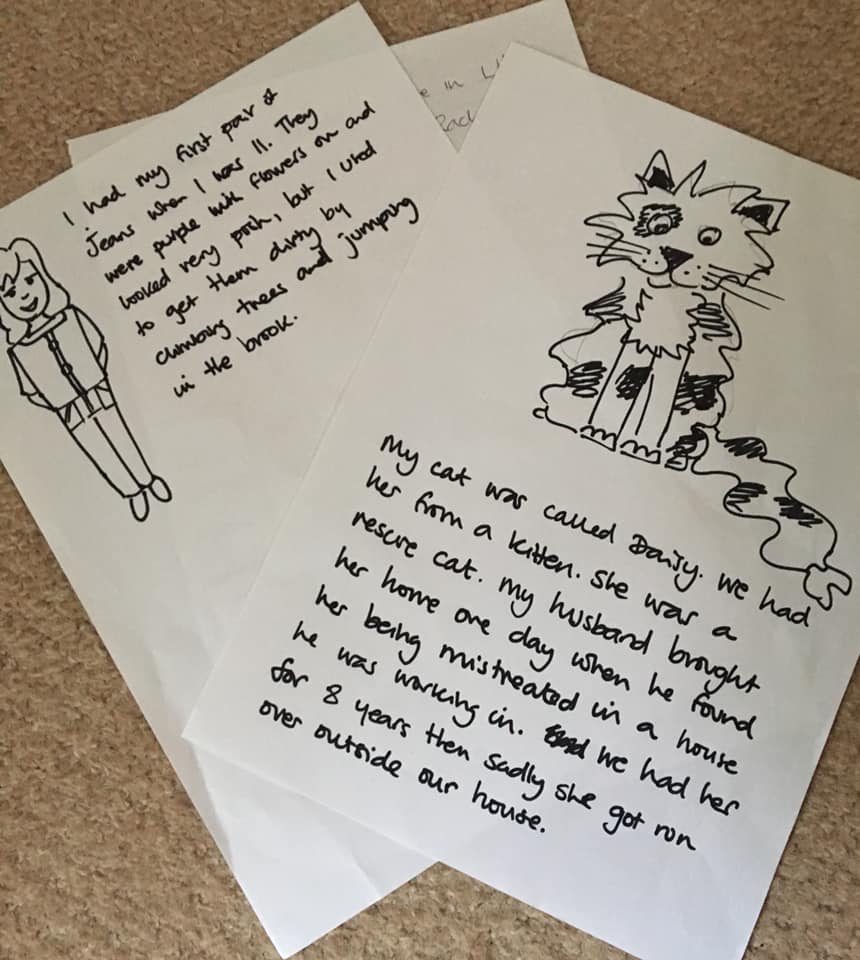 I had my first pair of
Jeans when I was 11. They
were purple with flowers on and
looked very posh, but I used
to get them dirty by
climbing trees and jumping
in the brook.
in
My cat was called Daisy. we had
her from a kitten. She was a
rescue cat. My husband brought
her home one day when he found
her being mistreated in a house
he was working in. we had her
for 8 years then sadly she got run
over outside our house.